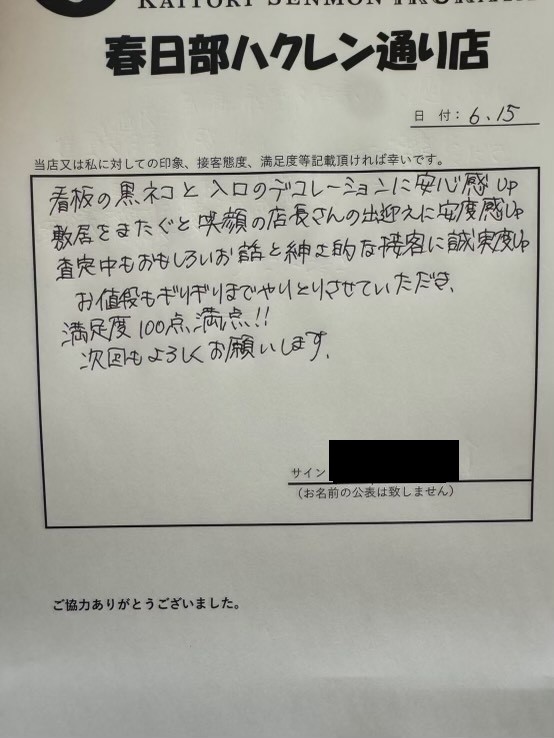 KAITORI SENMON
春日部ハクレン通り店
日 付：6.15
当店又は私に対しての印象、接客態度、満足度等記載頂ければ幸いです。
看板の黒ネコと入口のデコレーションに安心感up
敷居をまたぐと笑顔の店長さんの出迎えに安度感up
査定中もおもしろいお話と紳士的な接客に誠実度up
お値段もギリギリまでやりとりさせていただき、
満足度100点満点!!
次回もよろしくお願いします。
サイン
（お名前の公表は致しません）
ご協力ありがとうございました。